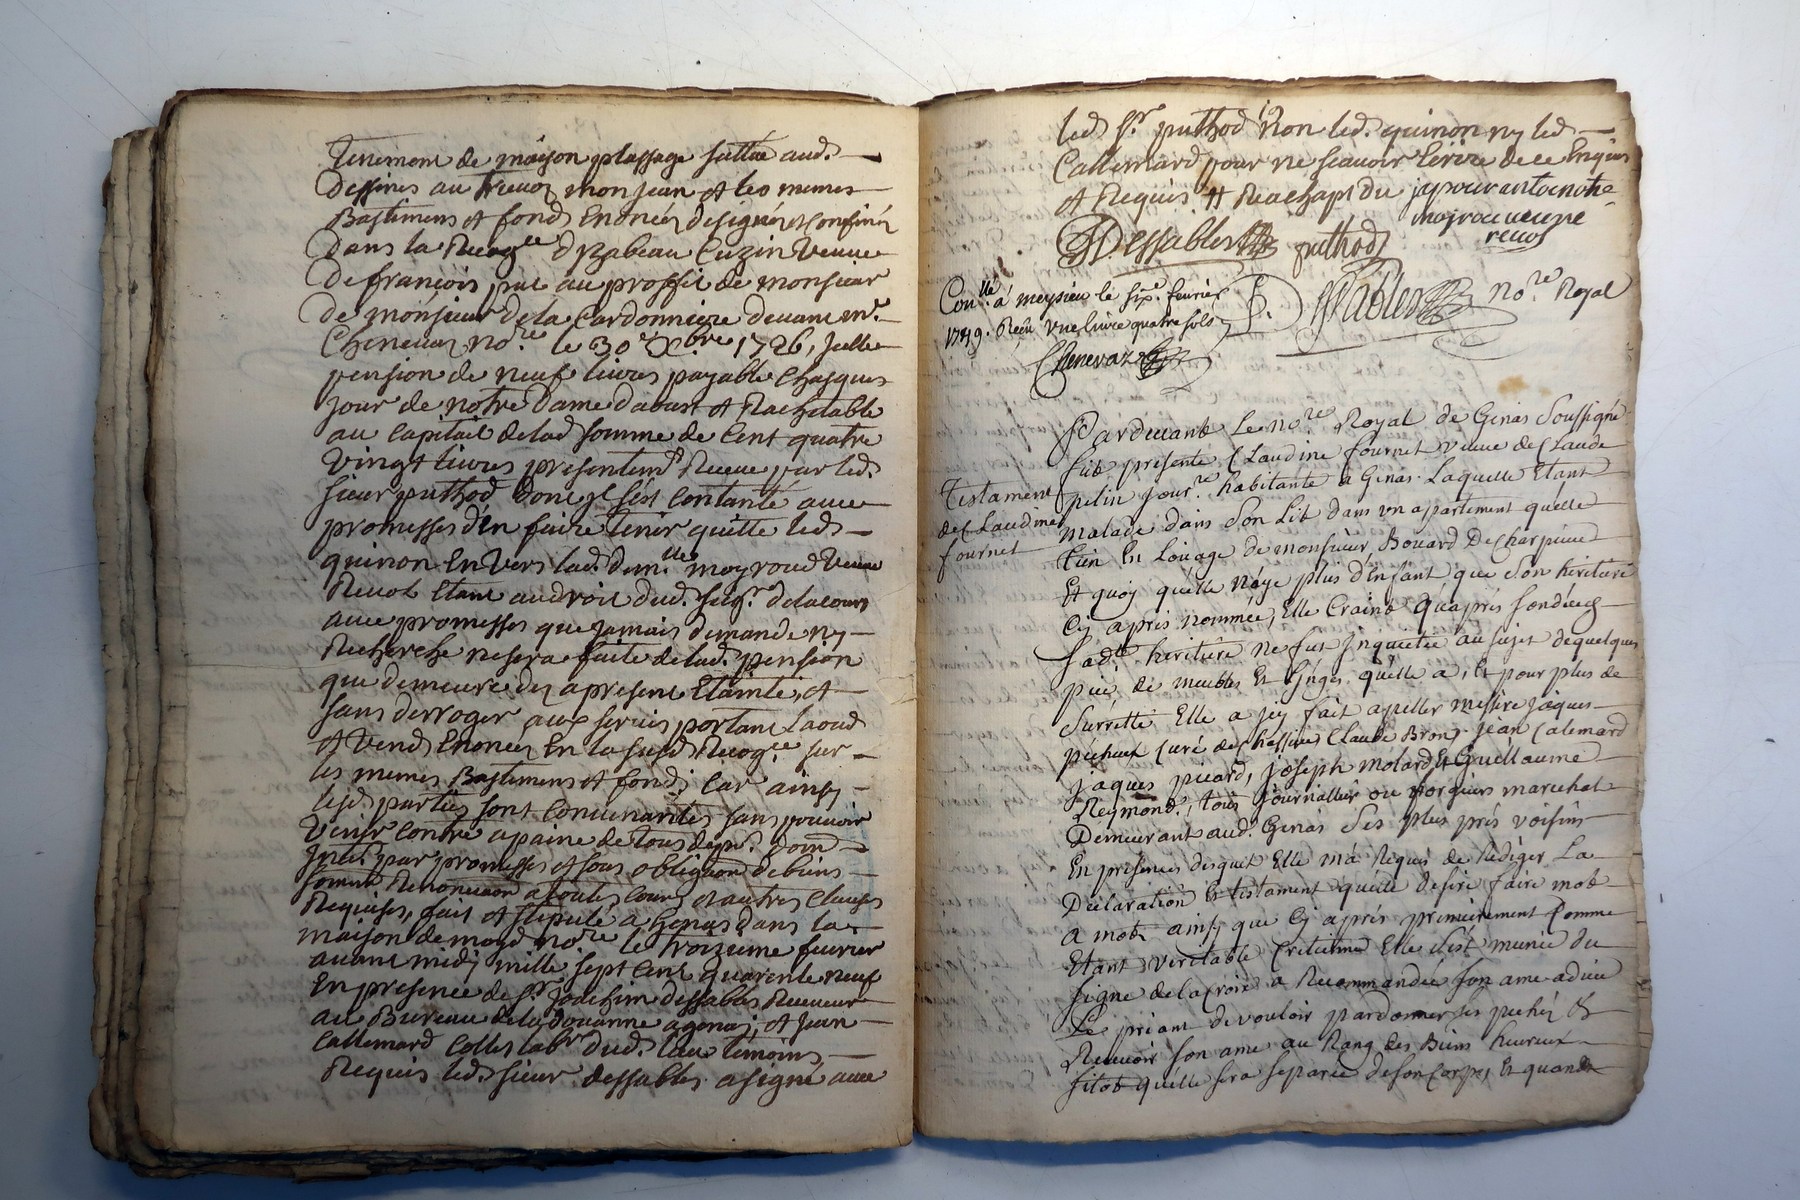 Tenement de maison plassage scittué aud.
dessines au treuoz mon jean et les memes
Bastimens et fonds Enoncés designés et confinés
dans la Recog.ce d'Izabeau Cuzin veuve
de françois, au proffit de monsieur
de monsieur de la Cardonniere devant m.e
Chenevaz no.re le 30.e Xbre 1726, jcelle
pension de neuf livres payable Chasques
jour de notre Dame d'aoust et Rachetable
au Capital de lad. somme de Cent quatre
vingt livres presentem.t Receue par led.
sieur puthod dont jl s'est Contanté avec
promesses d'en faire tenir quitte led.
quinon Envers lad. dem.lle moyroud veuve
Revol Etant au droit dud. seig.r delacour
avec promesses que jamais demande ny
Recherche ne sera faite de lad. pension
qui demeure dez apresent Etainte, et
sans derroger aux servis portant Laods
et vends Enoncés En la susd. Recog.ce sur
les memes Bastimens et fonds; Car ainsy
lesd. parties sont Convenantes sans pouvoir
venir Contre a paine de tous dep.s dom.
jnts. par promesses et sous obligaon de biens
soumis Renonciaon a toutes Cours et autres Clauses
Requises, fait et stipulé a Genas dans la
maison de moyd. no.re le troizieme fevrier
avant midy mille sept Cent quarente neuf
En presence de s.r joachim dessables Receveur
au Bureau de la Douanne a genas, et jean
Callemard Collet lab.r dud. lieu temoins
Requis led. sieur dessables a signé avec
led. s.r puthod Non led. quinon ny led.
Callemard pour ne scavoir Ecrire de ce Enquis
et Requis et Reachapt du
jay pour autoenothe
moyroud veuve
revol
JDessables puthod
Con.lle a meysieu le six.e fevrier
1749. Reçu une livre quatre sols
Chenevaz
Dessables no.re Royal
Pardevant Le no.re Royal de Genas Soussigné
fut présente Claudine fournet veuve de Claude
Testament
de Claudine
fournet
petin jour.re habitante a Genas. Laquelle Etant
malade dans Son Lit dans un appartement quelle
tien En Louage de monsieur Bouard De charpieu
Et quoy quelle n'aye plus d'Enfant que Son héritiere
Cy aprés nommée, Elle Craint quaprés son décés
Sad.te héritiere ne fut Jnquietée au sujet de quelques
piéce de meubles Et Linges quelle a, Et pour plus de
Surretté Elle a jcy fait apeller messire jaques
pecheux Curé de Chassieu Claude Bron, Jean Calemard
jaques picard, joseph molard Et Guéllaume
Reymond. tous journallier ou forgeurs marechal
Demeurant aud. Genas Ses plus prés voisins
En présences desquel Elle ma Requis de Rédiger La
Déclaration Et testament quelle desire faire mot
a mot ainsy que Cy aprés premierement Comme
Etant véritable Cretienne Elle Sest munie du
Signe de la Croix a Recommandée Son ame a dieu
Le priant de vouloir pardonner ses pechéz Et
Recevoir Son ame au Rang des Biens heureux
Sitot quelle sera separée de son Corps, Et quand